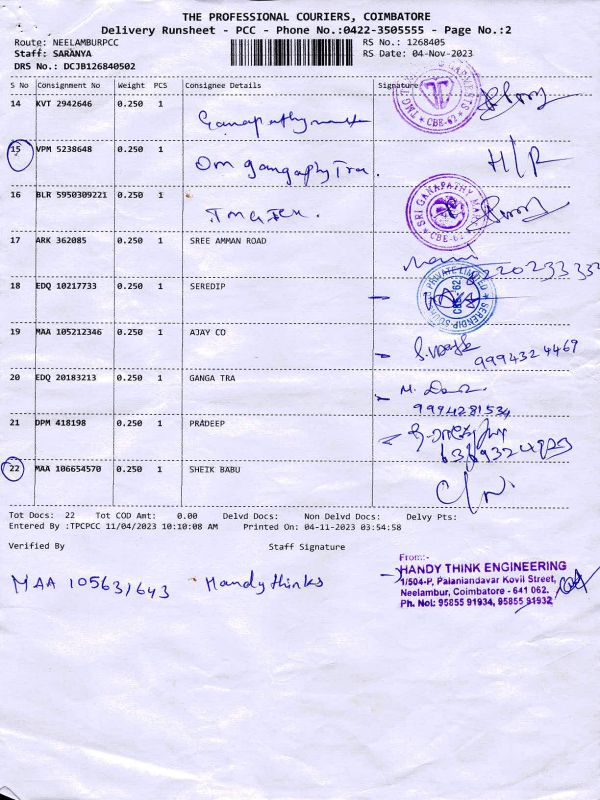 THE PROFESSIONAL COURIERS, COIMBATORE
Delivery Runsheet - PCC - Phone No.:0422-3505555 - Page No.:2
Route: NEELAMBURPCC RS No.: 1268405
Staff: SARANYA RS Date: 04-Nov-2023
DRS No.: DCJB126840502
S No Consignment No Weight PCS Consignee Details Signature
14 KVT 2942646 0.250 1
15 VPM 5238648 0.250 1 Om H/R
16 BLR 5950309221 0.250 1
SRI GANAPATHY CBE-62
17 ARK 362085 0.250 1 SREE AMMAN ROAD
18 EDQ 10217733 0.250 1 SEREDIP
PRIVATE LIMITED CBE-62
19 MAA 105212346 0.250 1 AJAY CO
9994324469
20 EDQ 20183213 0.250 1 GANGA TRA
9994281534
21 DPM 418198 0.250 1 PRADEEP
22 MAA 106654570 0.250 1 SHEIK BABU
Tot Docs: 22 Tot COD Amt: 0.00 Delvd Docs: Non Delvd Docs: Delvy Pts:
Entered By :TPCPCC 11/04/2023 10:10:08 AM Printed On: 04-11-2023 03:54:58
Verified By Staff Signature
MAA 105631643 Handythinks
From:-
HANDY THINK ENGINEERING
1/504-P, Palaniandavar Kovil Street,
Neelambur, Coimbatore - 641 062.
Ph. No: 95855 91934, 95855 91932